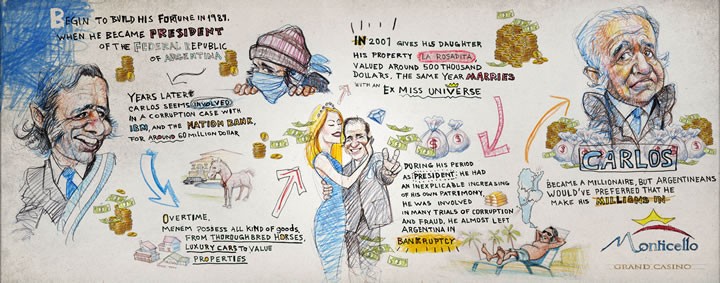 BEGIN TO BUILD HIS FORTUNE IN 1989,
WHEN HE BECAME PRESIDENT
OF THE FEDERAL REPUBLIC
OF ARGENTINA
YEARS LATER
CARLOS SEEMS INVOLVED
IN A CORRUPTION CASE WITH
IBM, AND THE NATION BANK,
FOR AROUND 60 MILLION DOLLAR
OVERTIME,
MENEM POSSESS ALL KIND OF GOODS,
FROM THOROUGHBRED HORSES,
LUXURY CARS TO VALUE
PROPERTIES
IN 2001 GIVES HIS DAUGHTER
HIS PROPERTY LA ROSADITA,
VALUED AROUND 500 THOUSAND
DOLLARS. THE SAME YEAR MARRIES
WITH AN EX MISS UNIVERSE
DURING HIS PERIOD
AS PRESIDENT: HE HAD
AN INEXPLICABLE INCREASING
OF HIS OWN PATRIMONY.
HE WAS INVOLVED
IN MANY TRIALS OF CORRUPTION
AND FRAUD, HE ALMOST LEFT
ARGENTINA IN
BANKRUPTCY
CARLOS
BECAME A MILLIONAIRE, BUT ARGENTINEANS
WOULD'VE PREFERRED THAT HE
MAKE HIS MILLIONS IN
Monticello
GRAND CASINO